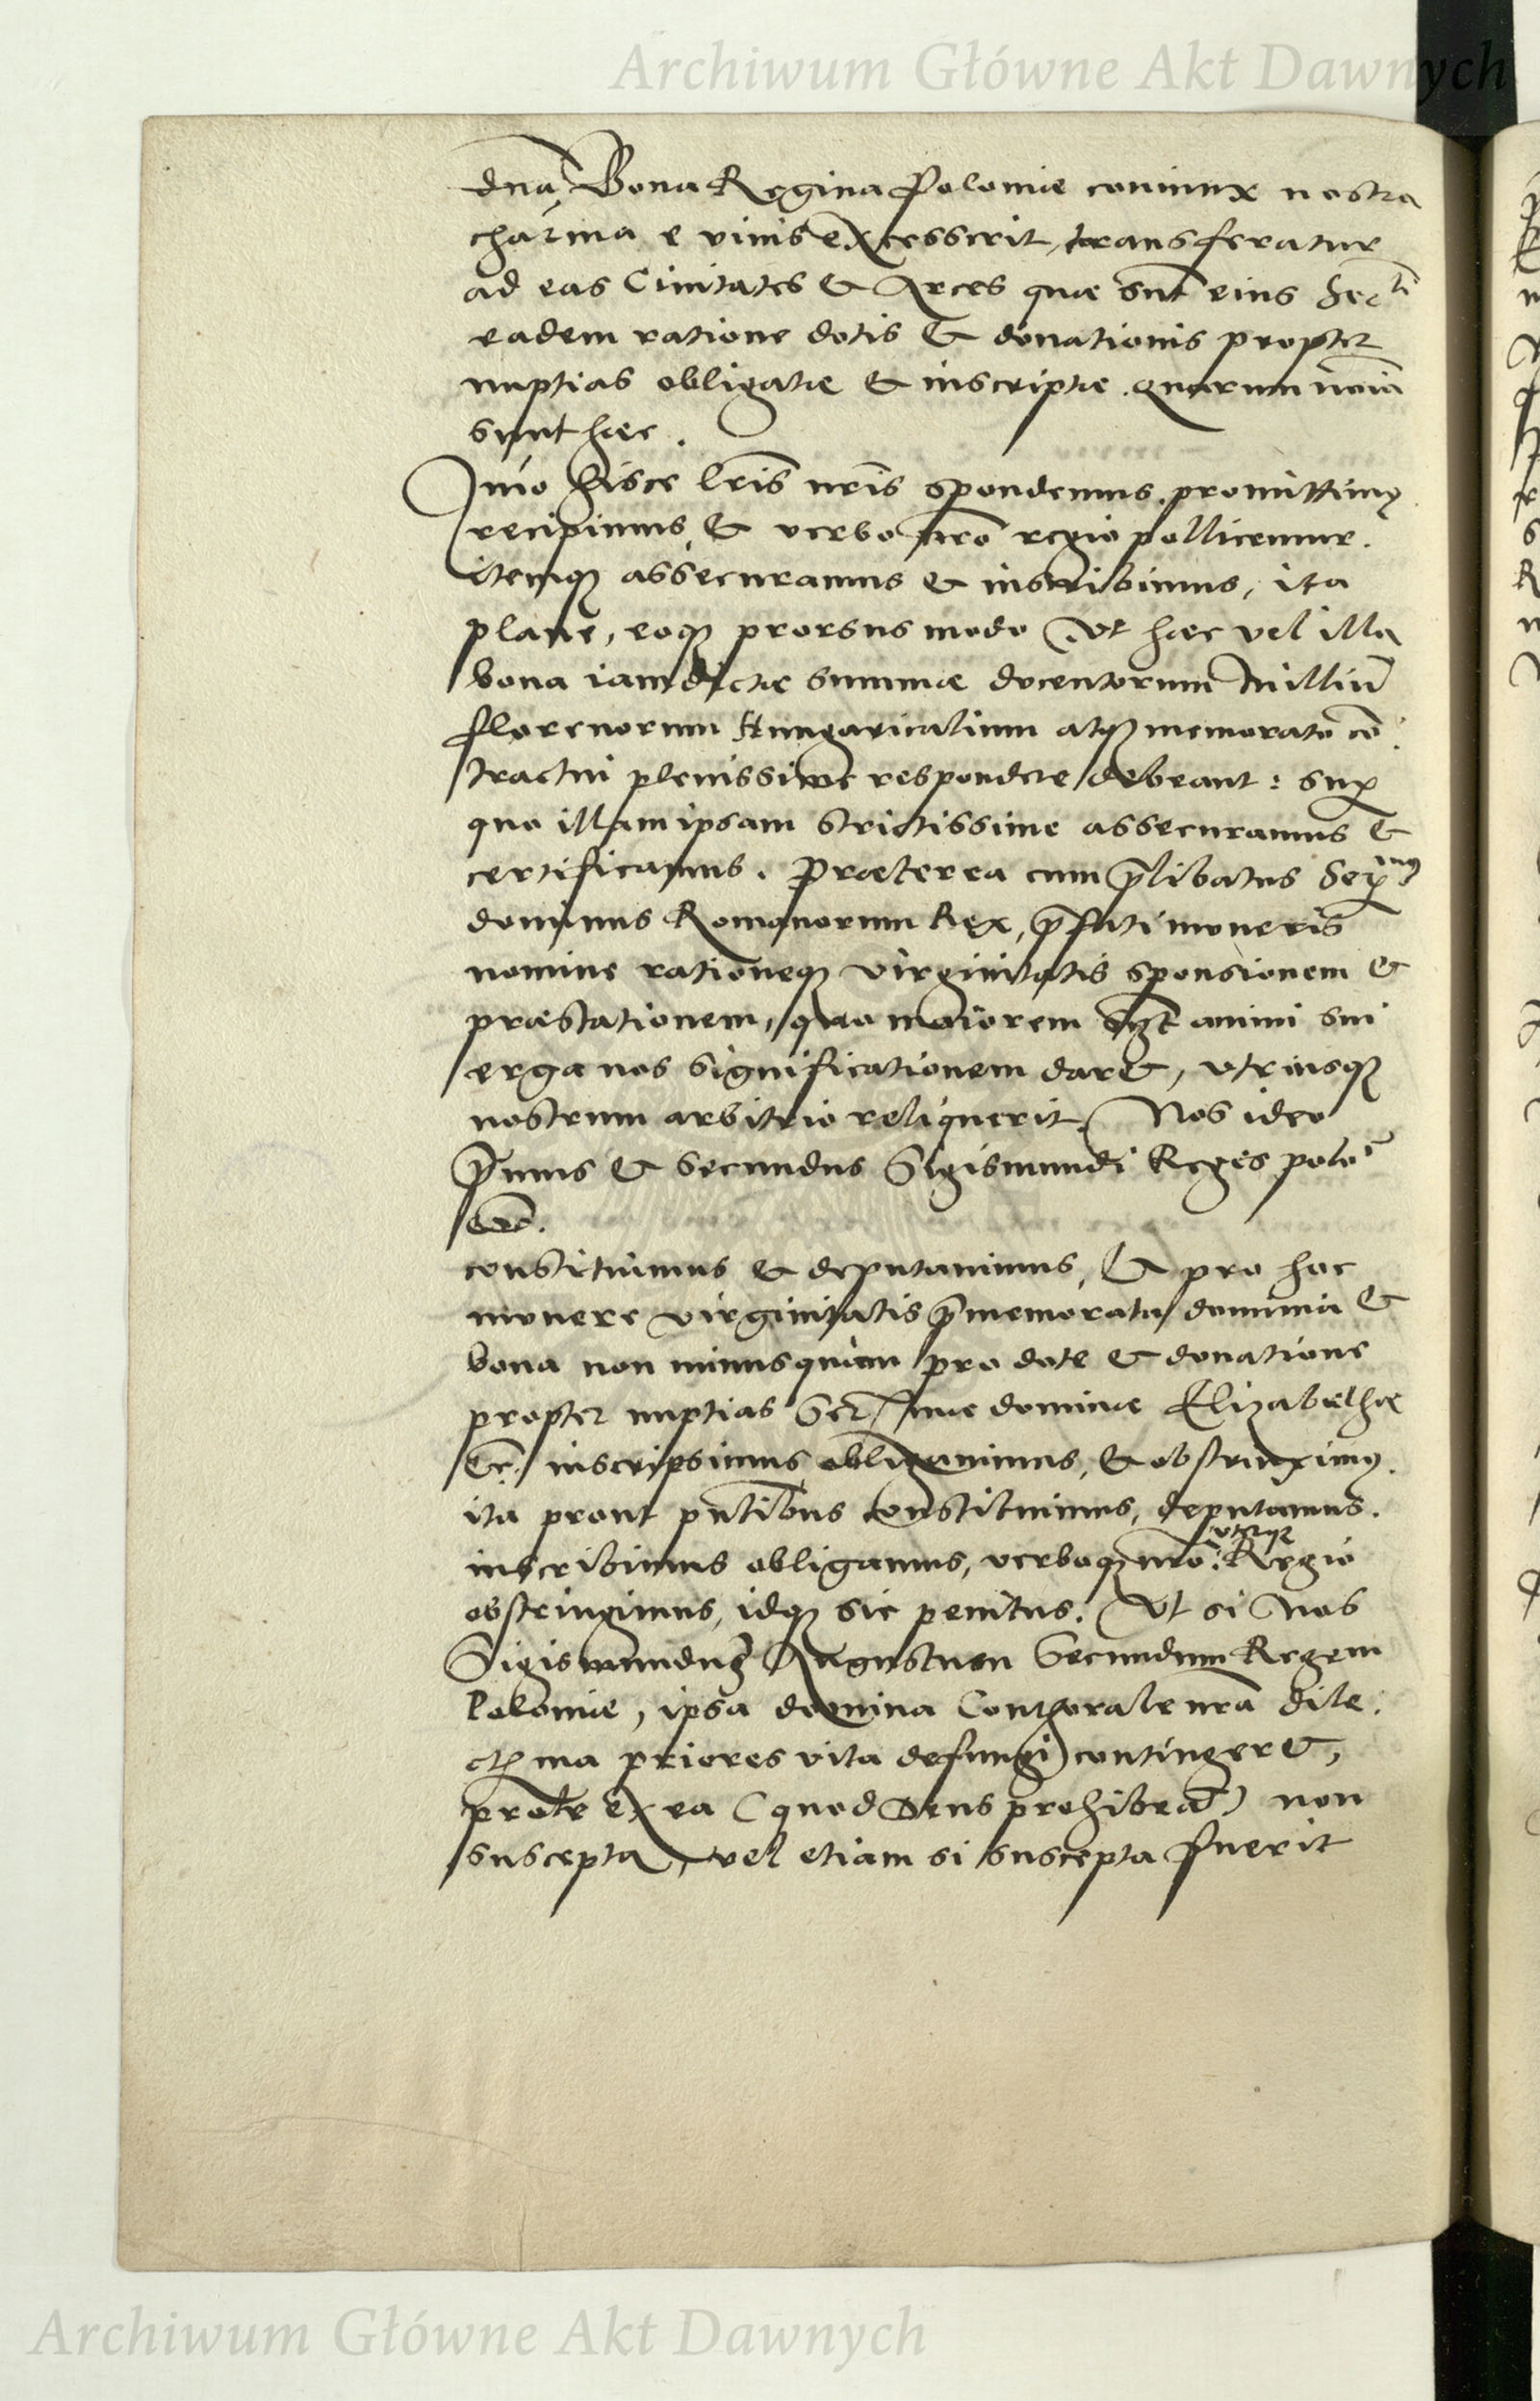 Archiwum Główne Akt Dawnych
dna Bona Regina Poloniæ coniunx nostra
charma e viuis excesserit, transferatur
ad eas Ciuitates & Arces quæ sunt eius Sertī
eadem ratione dotis & donationis propter
nuptias obligatæ & inscriptæ. quarum noīa
sunt hæc.
Imo hisce lrīs nrīs spondemus. promittimꝰ
recipimus, & verbo nrō regio pollicemur.
itemqꝫ assecuramus & inscribimus, ita
plane, eoqꝫ prorsus modo. Vt hæc vel illa
bona iam dictæ summæ ducentorum milliū
florenorum Hungaricalium atqꝫ memorato cō
tractui plenissime respondere debeant: suꝑ
quo illam ipsam strictissime assecuramus &
certificamus. Præterea cum p̄libatus Serꝫmus
dominus Romanorum Rex, p̄fati muneris
nomine rationeqꝫ virginitatis sponsionem &
præstationem, quo maiorem animi sui
erga nos significationem dar&, vtriusqꝫ
nostrum arbitrio reliquerit. Nos ideo
Primus & secundus Sigismundi Reges polo
etc.
constituimus & deputauimus, & pro hoc
munere virginitatis p̄memorata dominia &
bona non minus quàm pro dote & donatione
propter nuptias Serꝫmæ dominæ Elizabethæ
etc. inscripsimus obligauimus, & obstrinximꝰ.
ita prout pn̄tibus constituimus, deputamus.
vtriqꝫ
inscribimus obligamus, verboqꝫ nrō Regio
obstringimus, idqꝫ sic penitus. Vt si Nos
Sigismundum Augustum Secundum Regem
Poloniæ, ipsa domina Conthorale nra dile
ctꝫma priores vita defungi continger&,
prole ex ea (quod Deus prohibeat) non
suscepta, vel etiam si suscepta fuerit
Archiwum Główne Akt Dawnych